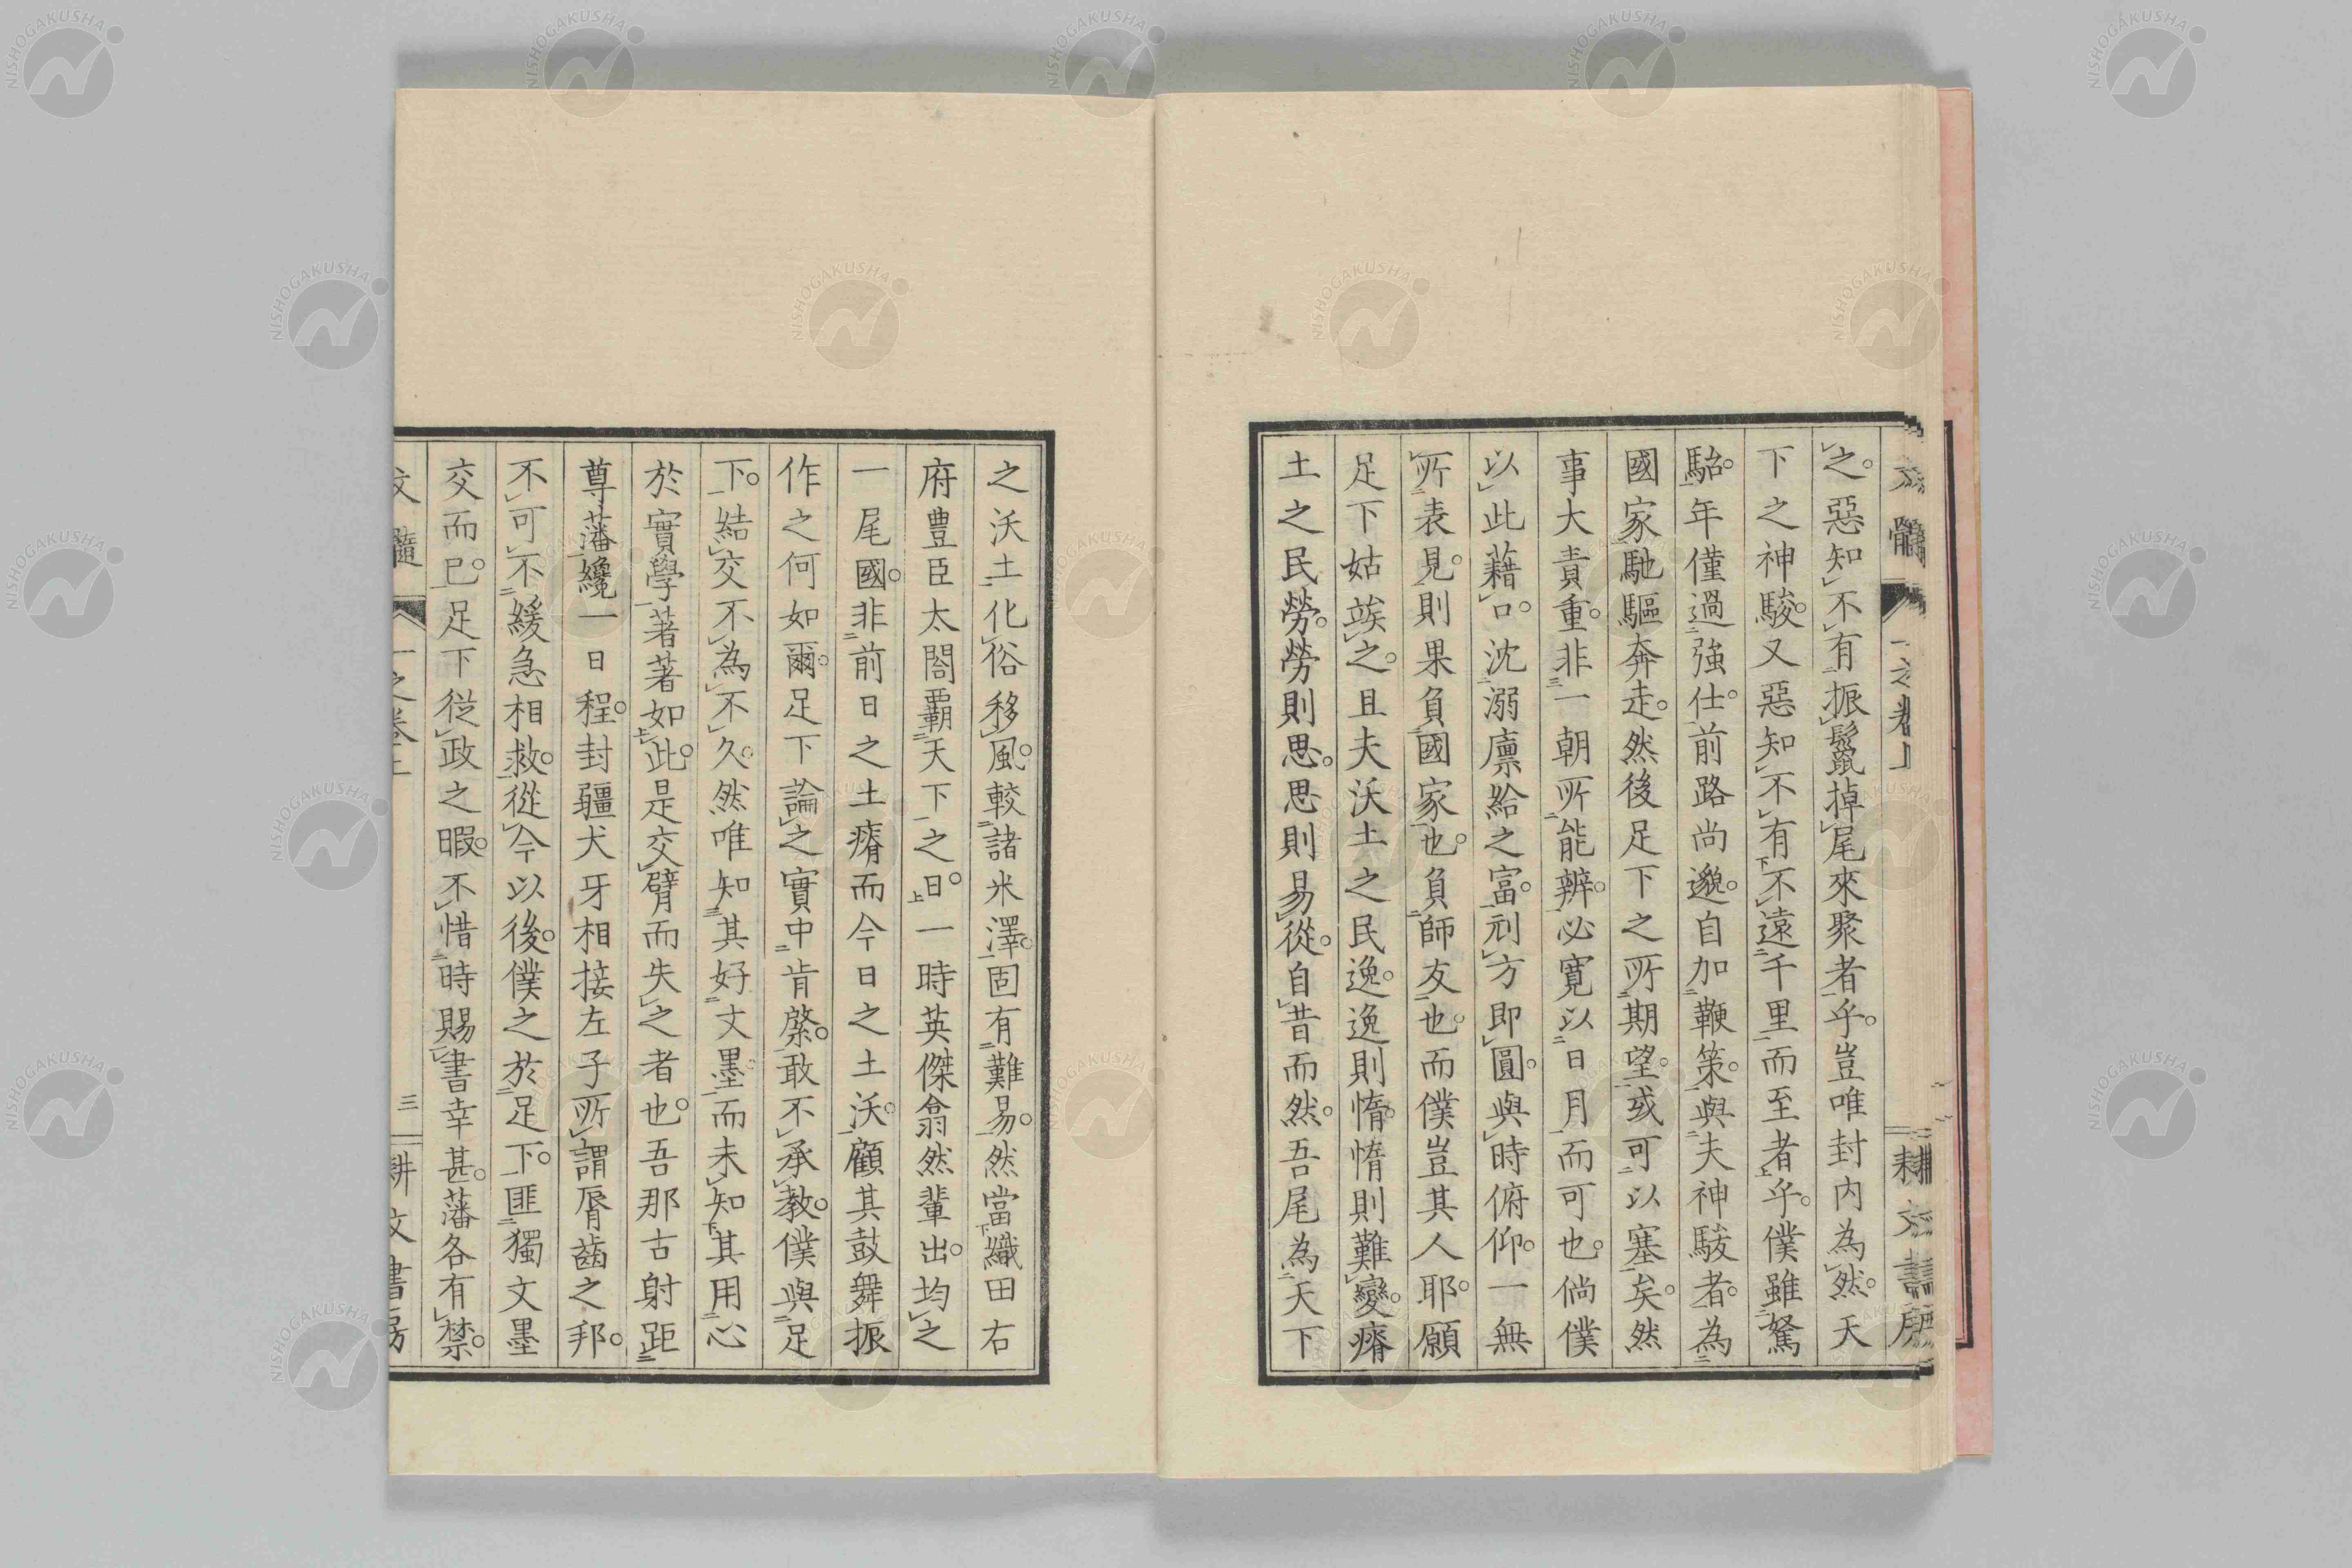 之。惡知不有振鬣掉尾來聚者乎。豈唯封内為然。天
下之神駿。又惡知不有不遠千里而至者乎。僕雖駑
駘。年僅過強仕。前路尚邈。自加鞭策。與夫神駿者。為
國家馳驅奔走。然後足下之所期望。或可以塞矣。然
事大責重。非一朝所能辨。必寛以日月而可也。倘僕
以此藉口。沈溺廪給之富。刓方即圓。與時俯仰。一無
所表見。則果負國家也。負師友也。而僕豈其人耶。願
足下姑竢之。且夫沃土之民逸。逸則惰。惰則難變。瘠
土之民勞。勞則思。思則易從。自昔而然。吾尾為天下
之沃土。化俗移風。較諸米澤。固有難易。然當織田右
府豊臣太閤覇天下之日。一時英傑翕然輩出。均之
一尾國。非前日之土瘠而今日之土沃。顧其鼓舞振
作之何如爾。足下論之實中肯綮。敢不承教。僕與足
下。結交不為不久。然唯知其好文墨。而未知其用心
於實學著著如此。是交臂而失之者也。吾那古射距
尊藩纔一日程。封疆犬牙相接左子所謂脣齒之邦。
不可不緩急相救。從今以後。僕之於足下。匪獨文墨
交而已。足下従政之暇。不惜時賜書幸甚。藩各有禁。
文髓
一之卷上
三
耕文書房
NISHOGAKUSHA